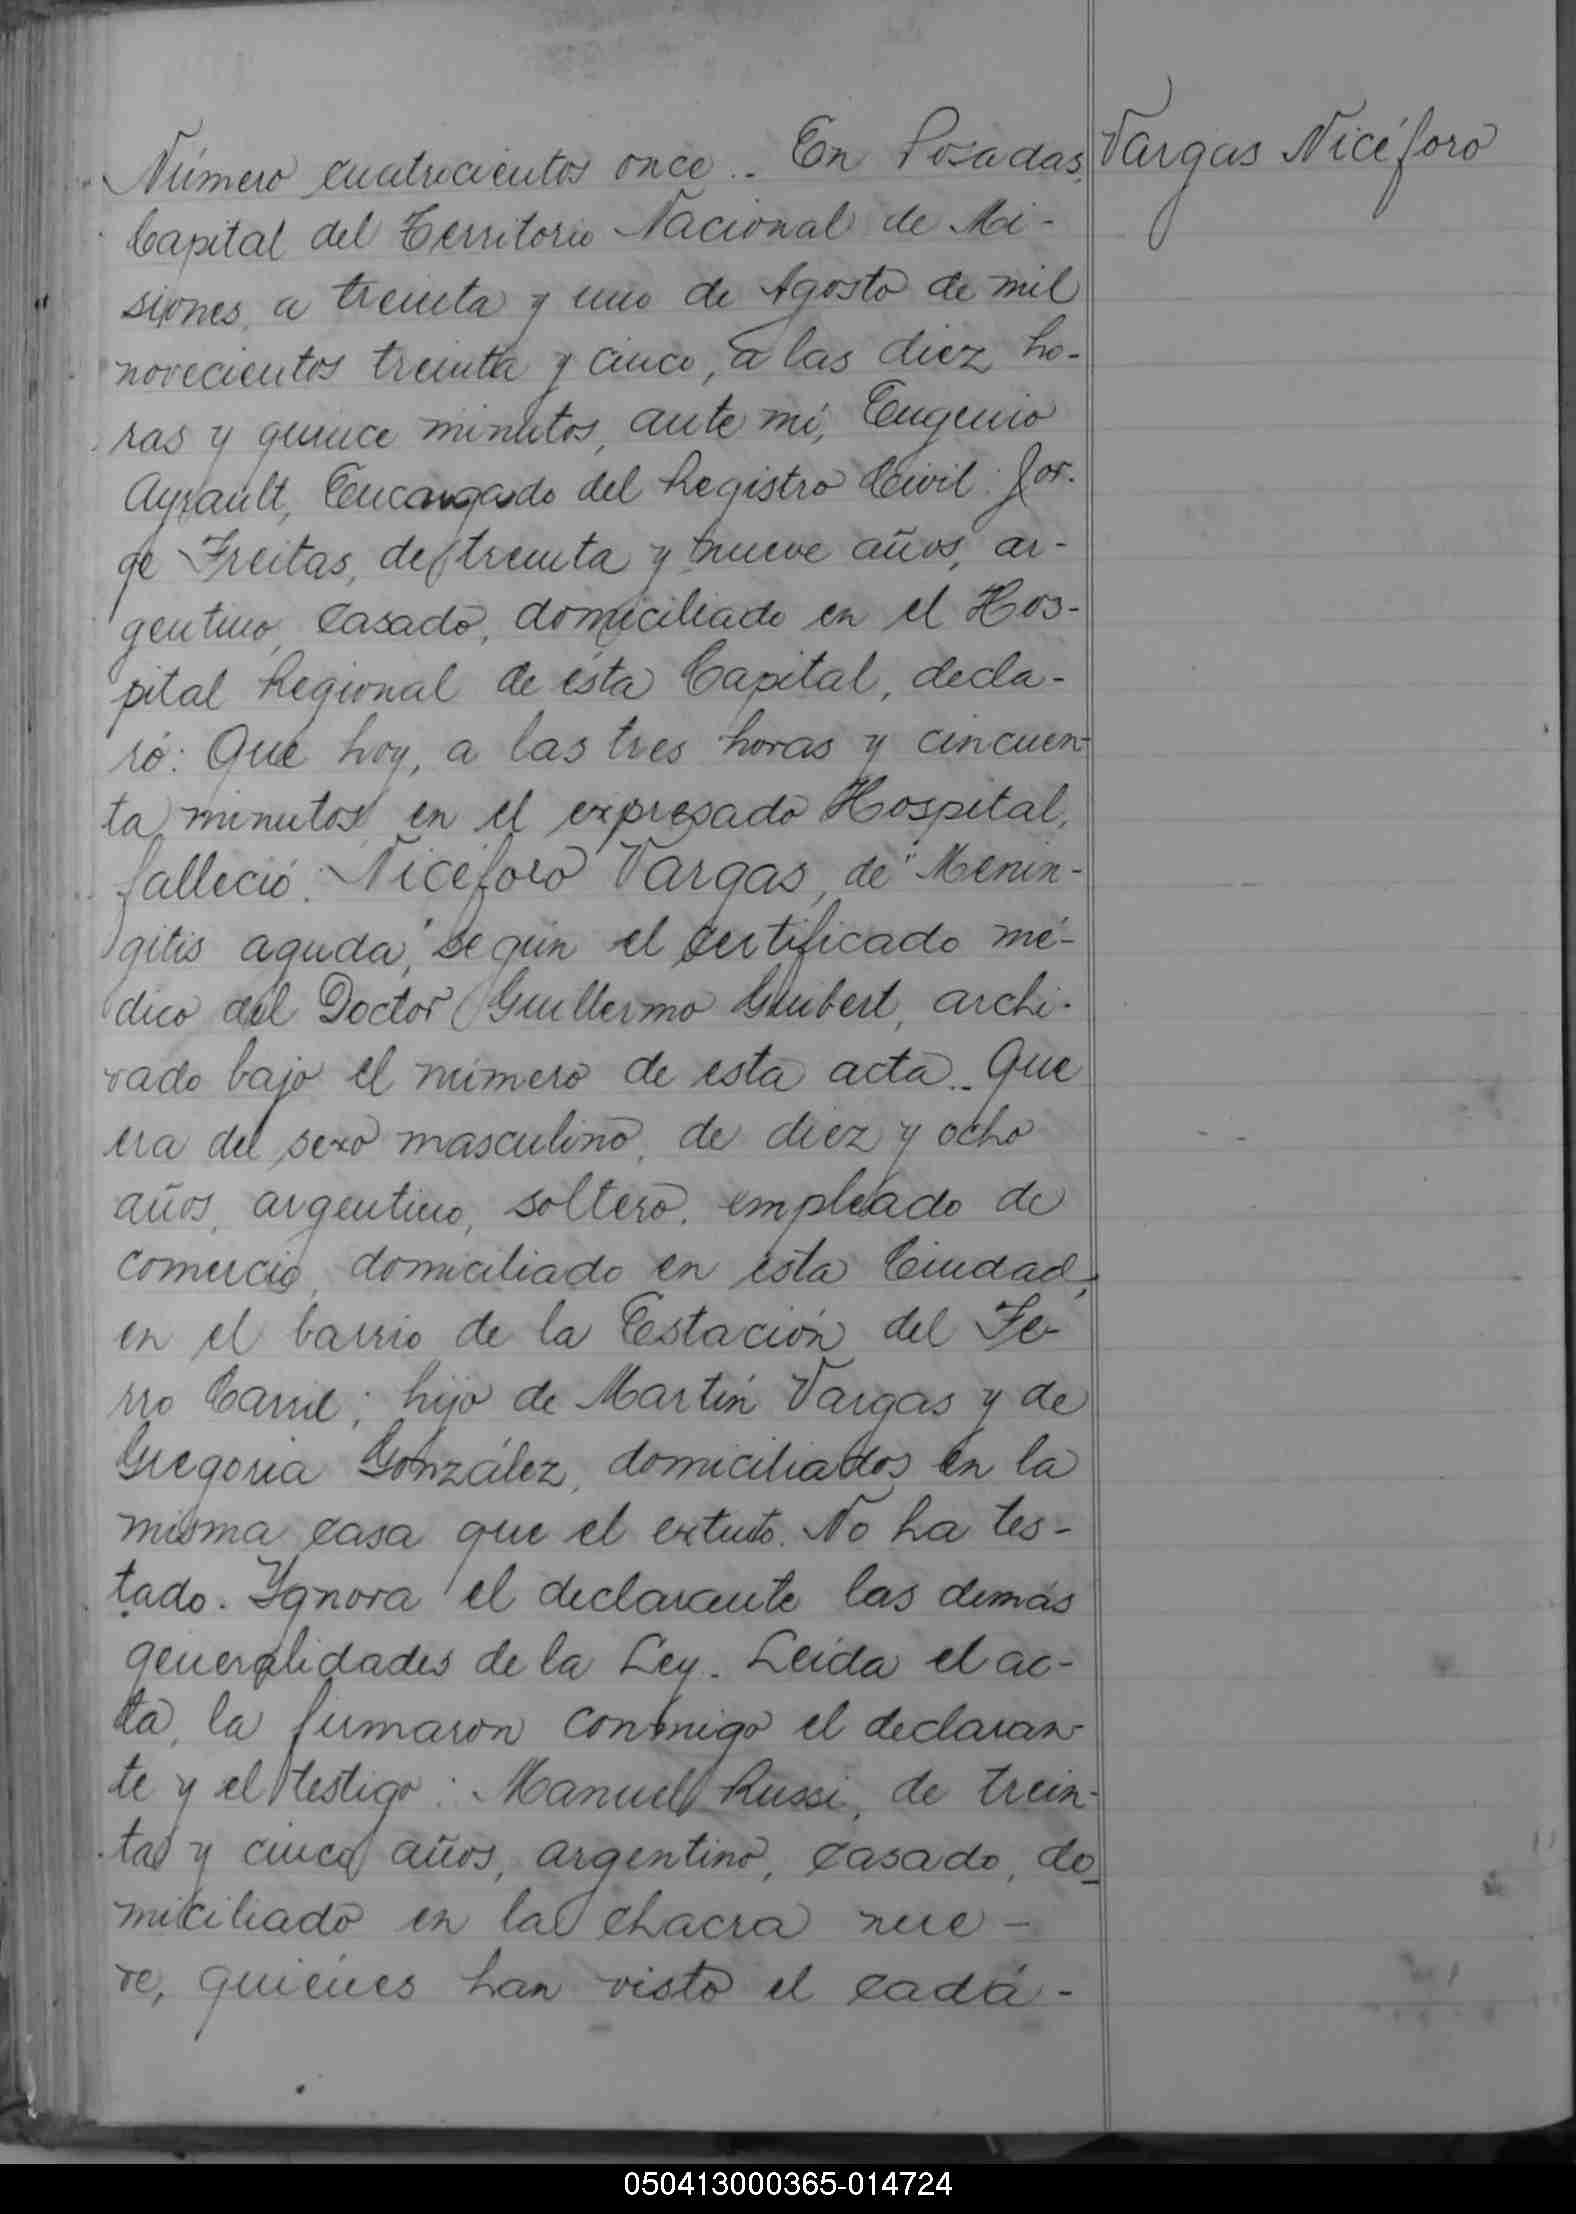 Vargas Nicéforo
Número cuatrocientos once.. En Posadas,
Capital del Territorio Nacional de Mi-
siones, a treinta y uno de Agosto de mil
novecientos treinta y cinco, a las diez ho-
ras y quince minutos, ante mí, Eugenio
Ayrault, Encargado del Registro Civil: Jor-
ge Freitas, de treinta y nueve años, ar-
gentino, casado, domiciliado en el Hos-
pital Regional de ésta Capital, decla-
ró: Que hoy, a las tres horas y cincuen-
ta minutos en el expresado Hospital,
falleció: Nicéforo Vargas, de "Menin-
gitis aguda", según el certificado mé-
dico del Doctor Guillermo Guibert, archi-
vado bajo el número de esta acta.. Que
era del sexo masculino, de diez y ocho
años, argentino, soltero, empleado de
comercio, domiciliado en esta Ciudad,
en el barrio de la Estación del Fe-
rro Carril; hijo de Martín Vargas y de
Gregoria González, domiciliados en la
misma casa que el extinto. No ha tes-
tado. Ygnora el declarante las demás
generalidades de la Ley. Leída el ac-
ta, la firmaron conmigo el declaran-
te y el testigo: Manuel Russi, de trein-
ta y cinco años, argentino, casado, do-
miciliado en la chacra nue-
ve, quiénes han visto el cadá-
050413000365-014724